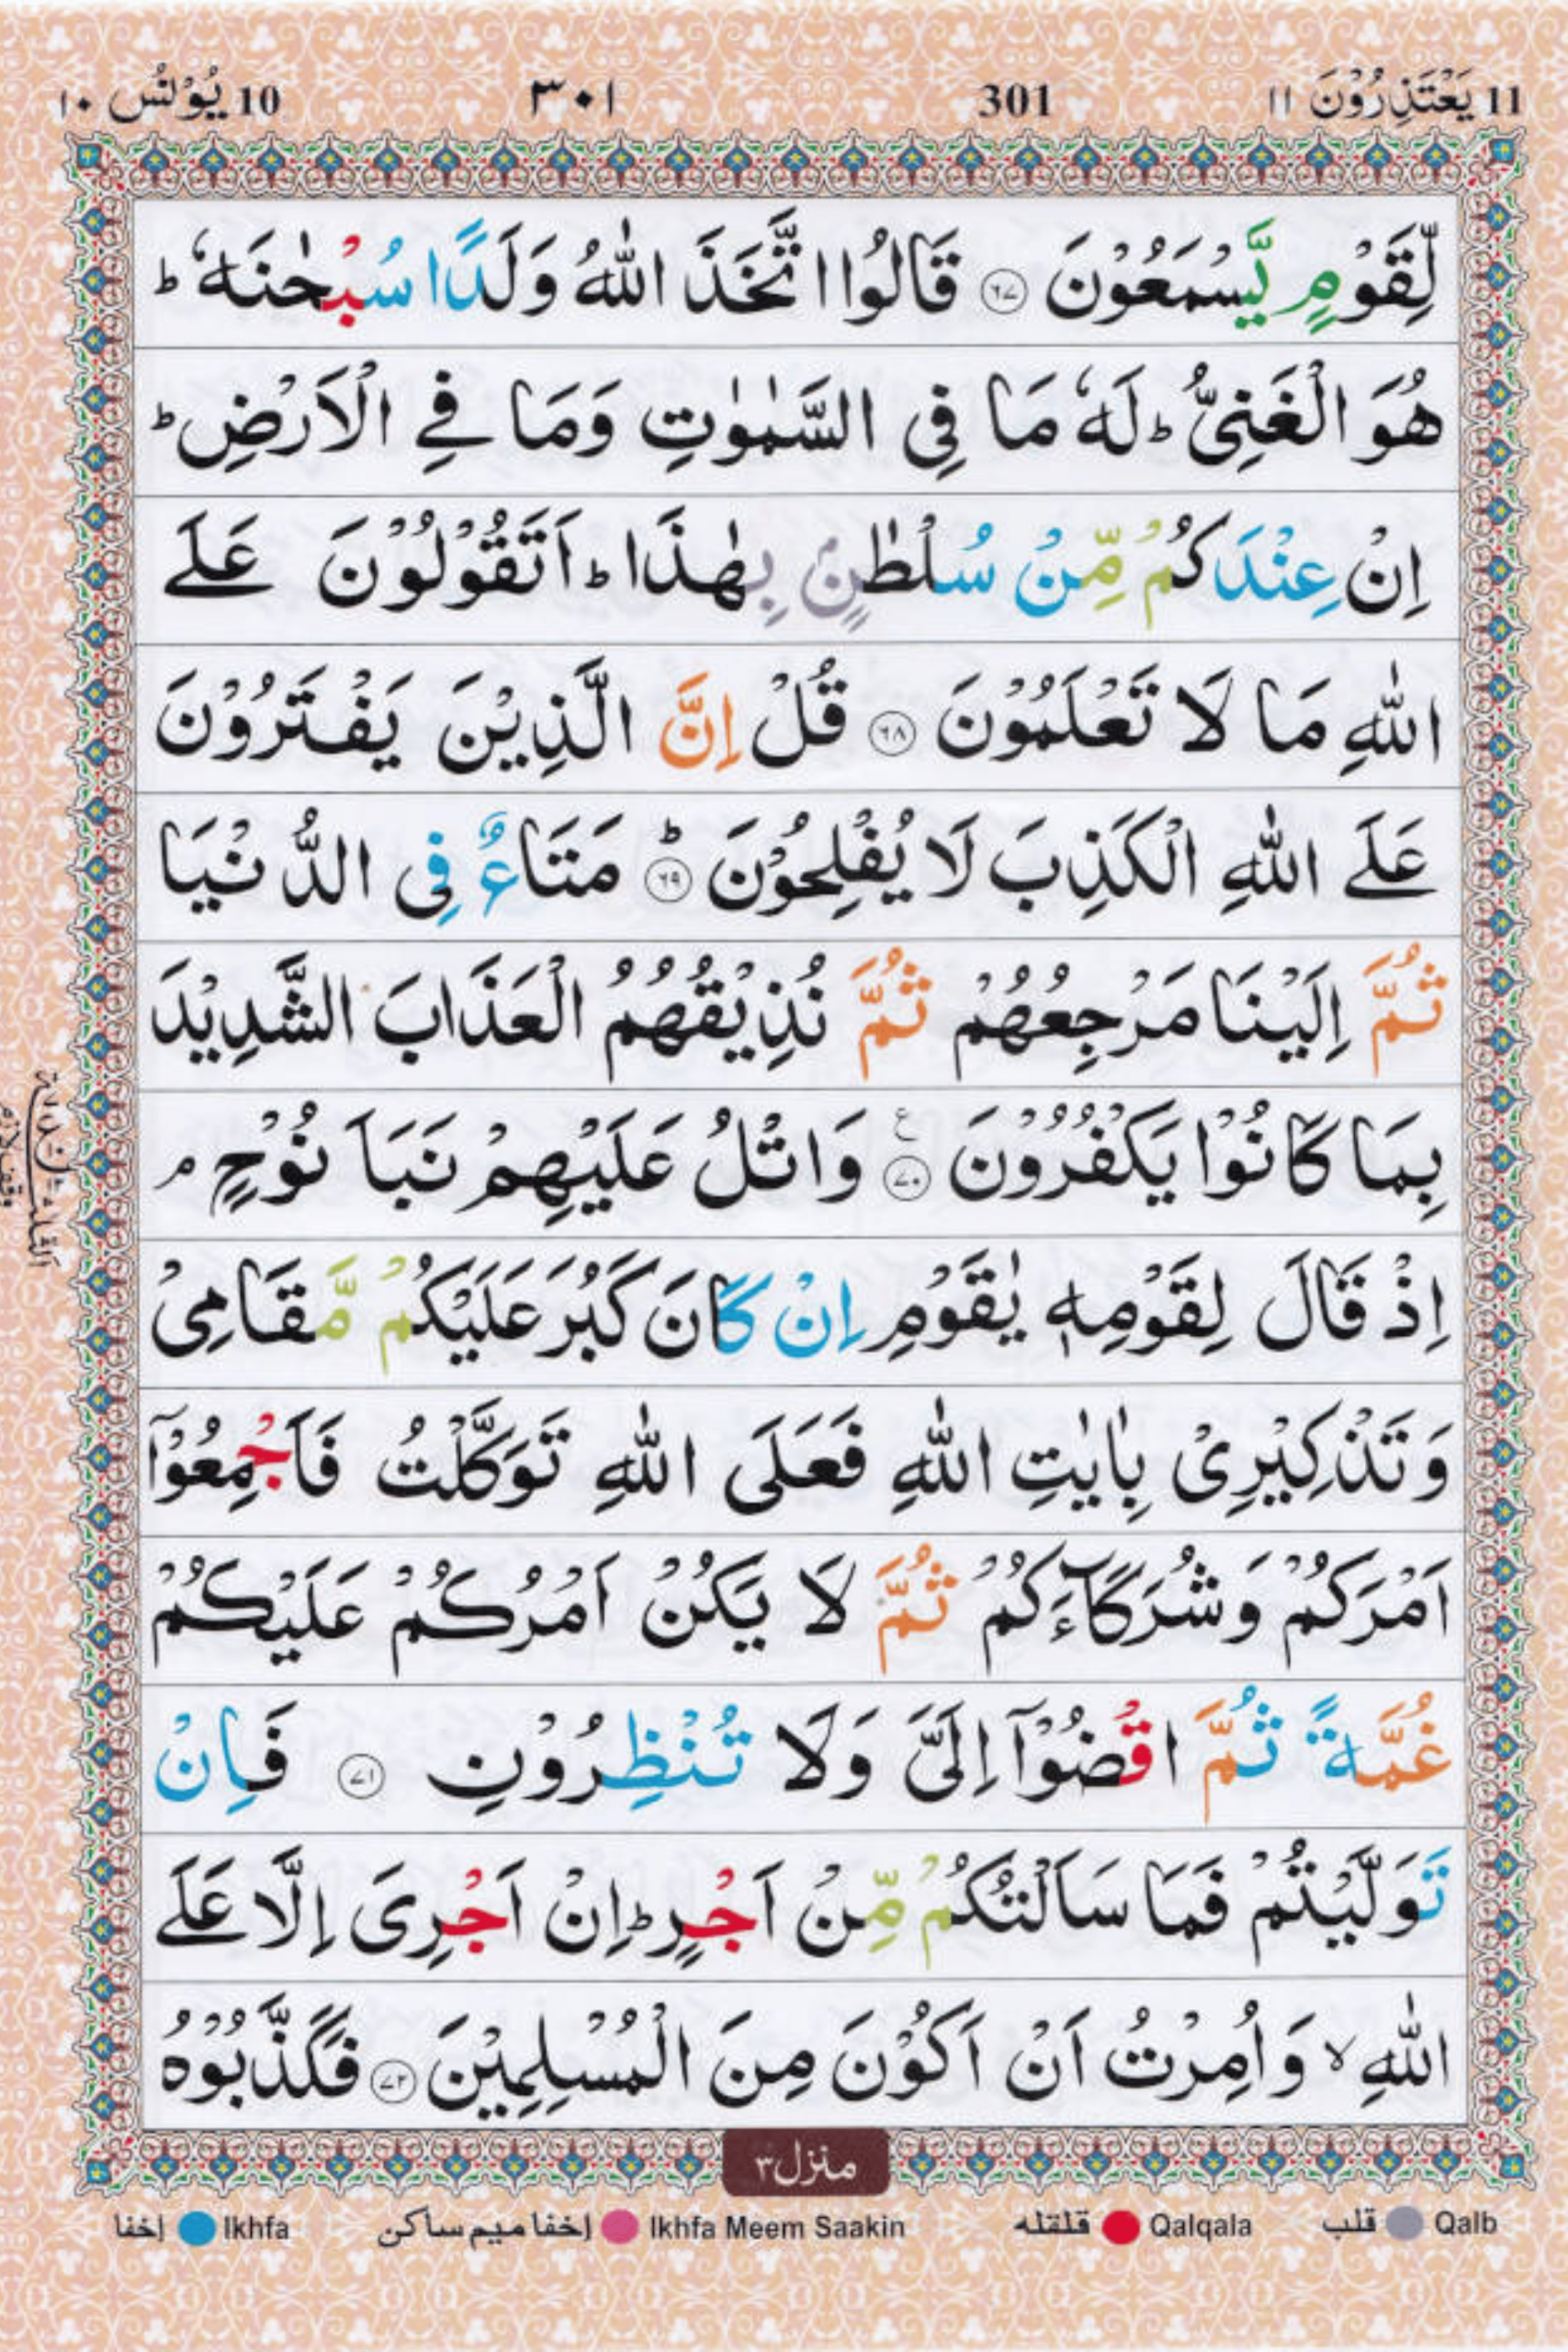 11 يَعْتَذِرُوْنَ ١١ 301 ٣٠١ 10 يُوْنُس ١٠
لِّقَوْمٍ يَّسْمَعُوْنَ ﴿٦٧﴾ قَالُوا اتَّخَذَ اللّٰهُ وَلَدًا سُبْحٰنَهٗ ؕ
هُوَ الْغَنِیُّ ؕ لَهٗ مَا فِی السَّمٰوٰتِ وَمَا فِے الْاَرْضِ ؕ
اِنْ عِنْدَكُمْ مِّنْ سُلْطٰنٍۭ بِهٰذَا ؕ اَتَقُوْلُوْنَ عَلَے
اللّٰهِ مَا لَا تَعْلَمُوْنَ ﴿٦٨﴾ قُلْ اِنَّ الَّذِيْنَ يَفْتَرُوْنَ
عَلَے اللّٰهِ الْكَذِبَ لَا يُفْلِحُوْنَ ؕ ﴿٦٩﴾ مَتَاعٌ فِی الدُّنْيَا
ثُمَّ اِلَيْنَا مَرْجِعُهُمْ ثُمَّ نُذِيْقُهُمُ الْعَذَابَ الشَّدِيْدَ
بِمَا كَانُوْا يَكْفُرُوْنَ ع ﴿٧٠﴾ وَاتْلُ عَلَيْهِمْ نَبَاَ نُوْحٍ ۘ
اِذْ قَالَ لِقَوْمِهٖ يٰقَوْمِ اِنْ كَانَ كَبُرَ عَلَيْكُمْ مَّقَامِیْ
وَتَذْكِيْرِیْ بِاٰيٰتِ اللّٰهِ فَعَلَی اللّٰهِ تَوَكَّلْتُ فَاَجْمِعُوْٓا
اَمْرَكُمْ وَشُرَكَآءَكُمْ ثُمَّ لَا يَكُنْ اَمْرُكُمْ عَلَيْكُمْ
غُمَّةً ثُمَّ اقْضُوْٓا اِلَیَّ وَلَا تُنْظِرُوْنِ ﴿٧١﴾ فَاِنْ
تَوَلَّيْتُمْ فَمَا سَاَلْتُكُمْ مِّنْ اَجْرٍ ؕ اِنْ اَجْرِیَ اِلَّا عَلَے
اللّٰهِ ۙ وَاُمِرْتُ اَنْ اَكُوْنَ مِنَ الْمُسْلِمِيْنَ ﴿٧٢﴾ فَكَذَّبُوْهُ
منزل ٣
Qalb قلب Qalqala قلقله Ikhfa Meem Saakin إخفا ميم ساكن Ikhfa إخفا